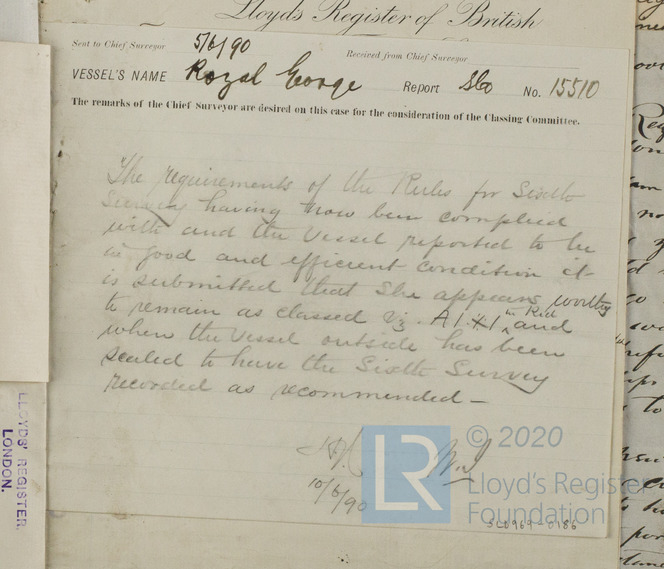 Lloyd's Register of British
Sent to Chief Surveyor 5/6/90 Received from Chief Surveyor
VESSEL'S NAME Royal George Report Slo No. 15510
The remarks of the Chief Surveyor are desired on this case for the consideration of the Classing Committee.
The requirements of the Rules for Sixth
Survey having now been complied
with and the Vessel reported to be
in good and efficient condition it
is submitted that She appears worthy
to remain as classed viz. A1.+1 in Red and
when the Vessel outside has been
scaled to have the Sixth Survey
recorded as recommended —
10/6/90
LLOYDS' REGISTER.
LONDON.
LR
© 2020
Lloyd's Register
Foundation
SLD969-0186